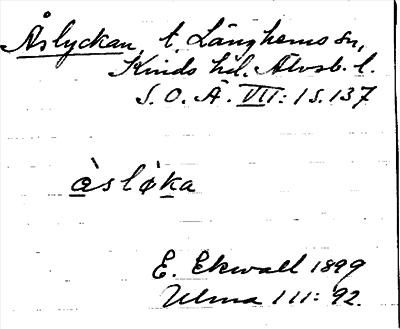 Åslyckan, t. Länghems sn,
Kinds hd. Älvsb. l.
S.O.Ä. VII: 1 s. 137
àsløka
E. Ekwall 1899
Ulma 111: 92.